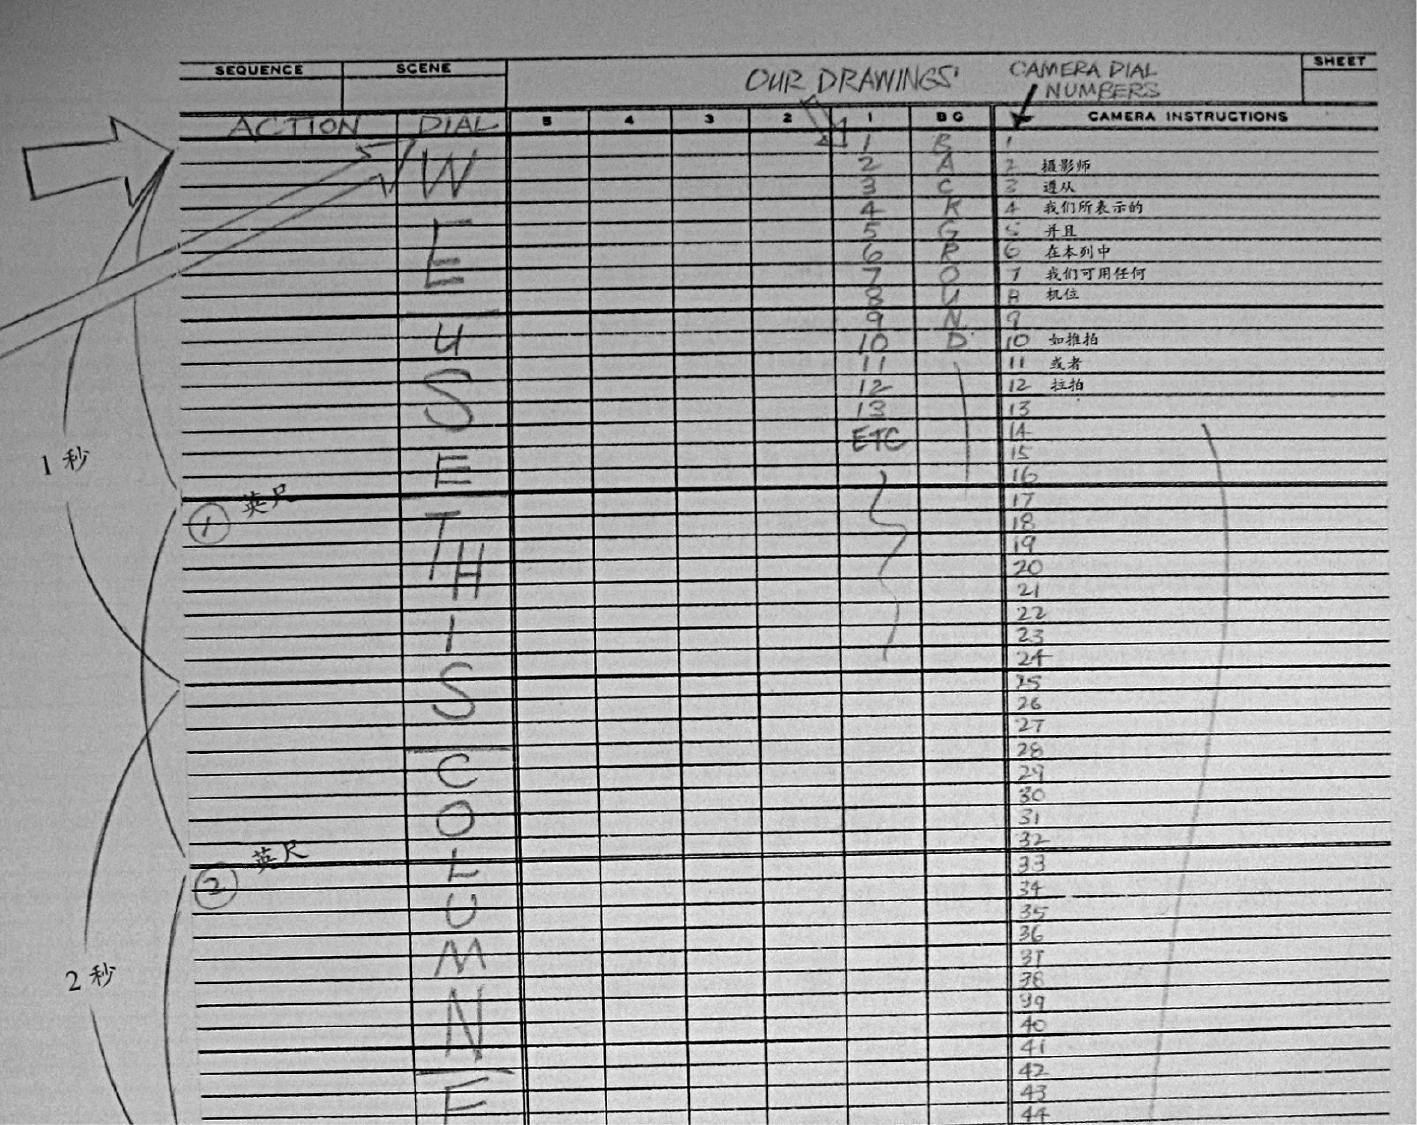 SEQUENCE SCENE OUR DRAWINGS CAMERA DIAL NUMBERS SHEET
ACTION DIAL 5 4 3 2 1 BG CAMERA INSTRUCTIONS
1 B 1
W 2 A 2 摄影师
3 C 3 遵从
4 K 4 我们所表示的
5 G 5 并且
E 6 R 6 在本列中
7 O 7 我们可用任何
8 U 8 机位
9 N 9
U 10 D 10 如推拍
11 11 或者
S 12 12 拉拍
13 13
ETC 14
1 秒 15
E 16
英尺 17
① T 18
19
H 20
21
22
I 23
24
25
S 26
27
28
C 29
30
O 31
32
英尺 L 33
② 34
U 35
36
M 37
2 秒 38
39
N 40
41
42
F 43
44